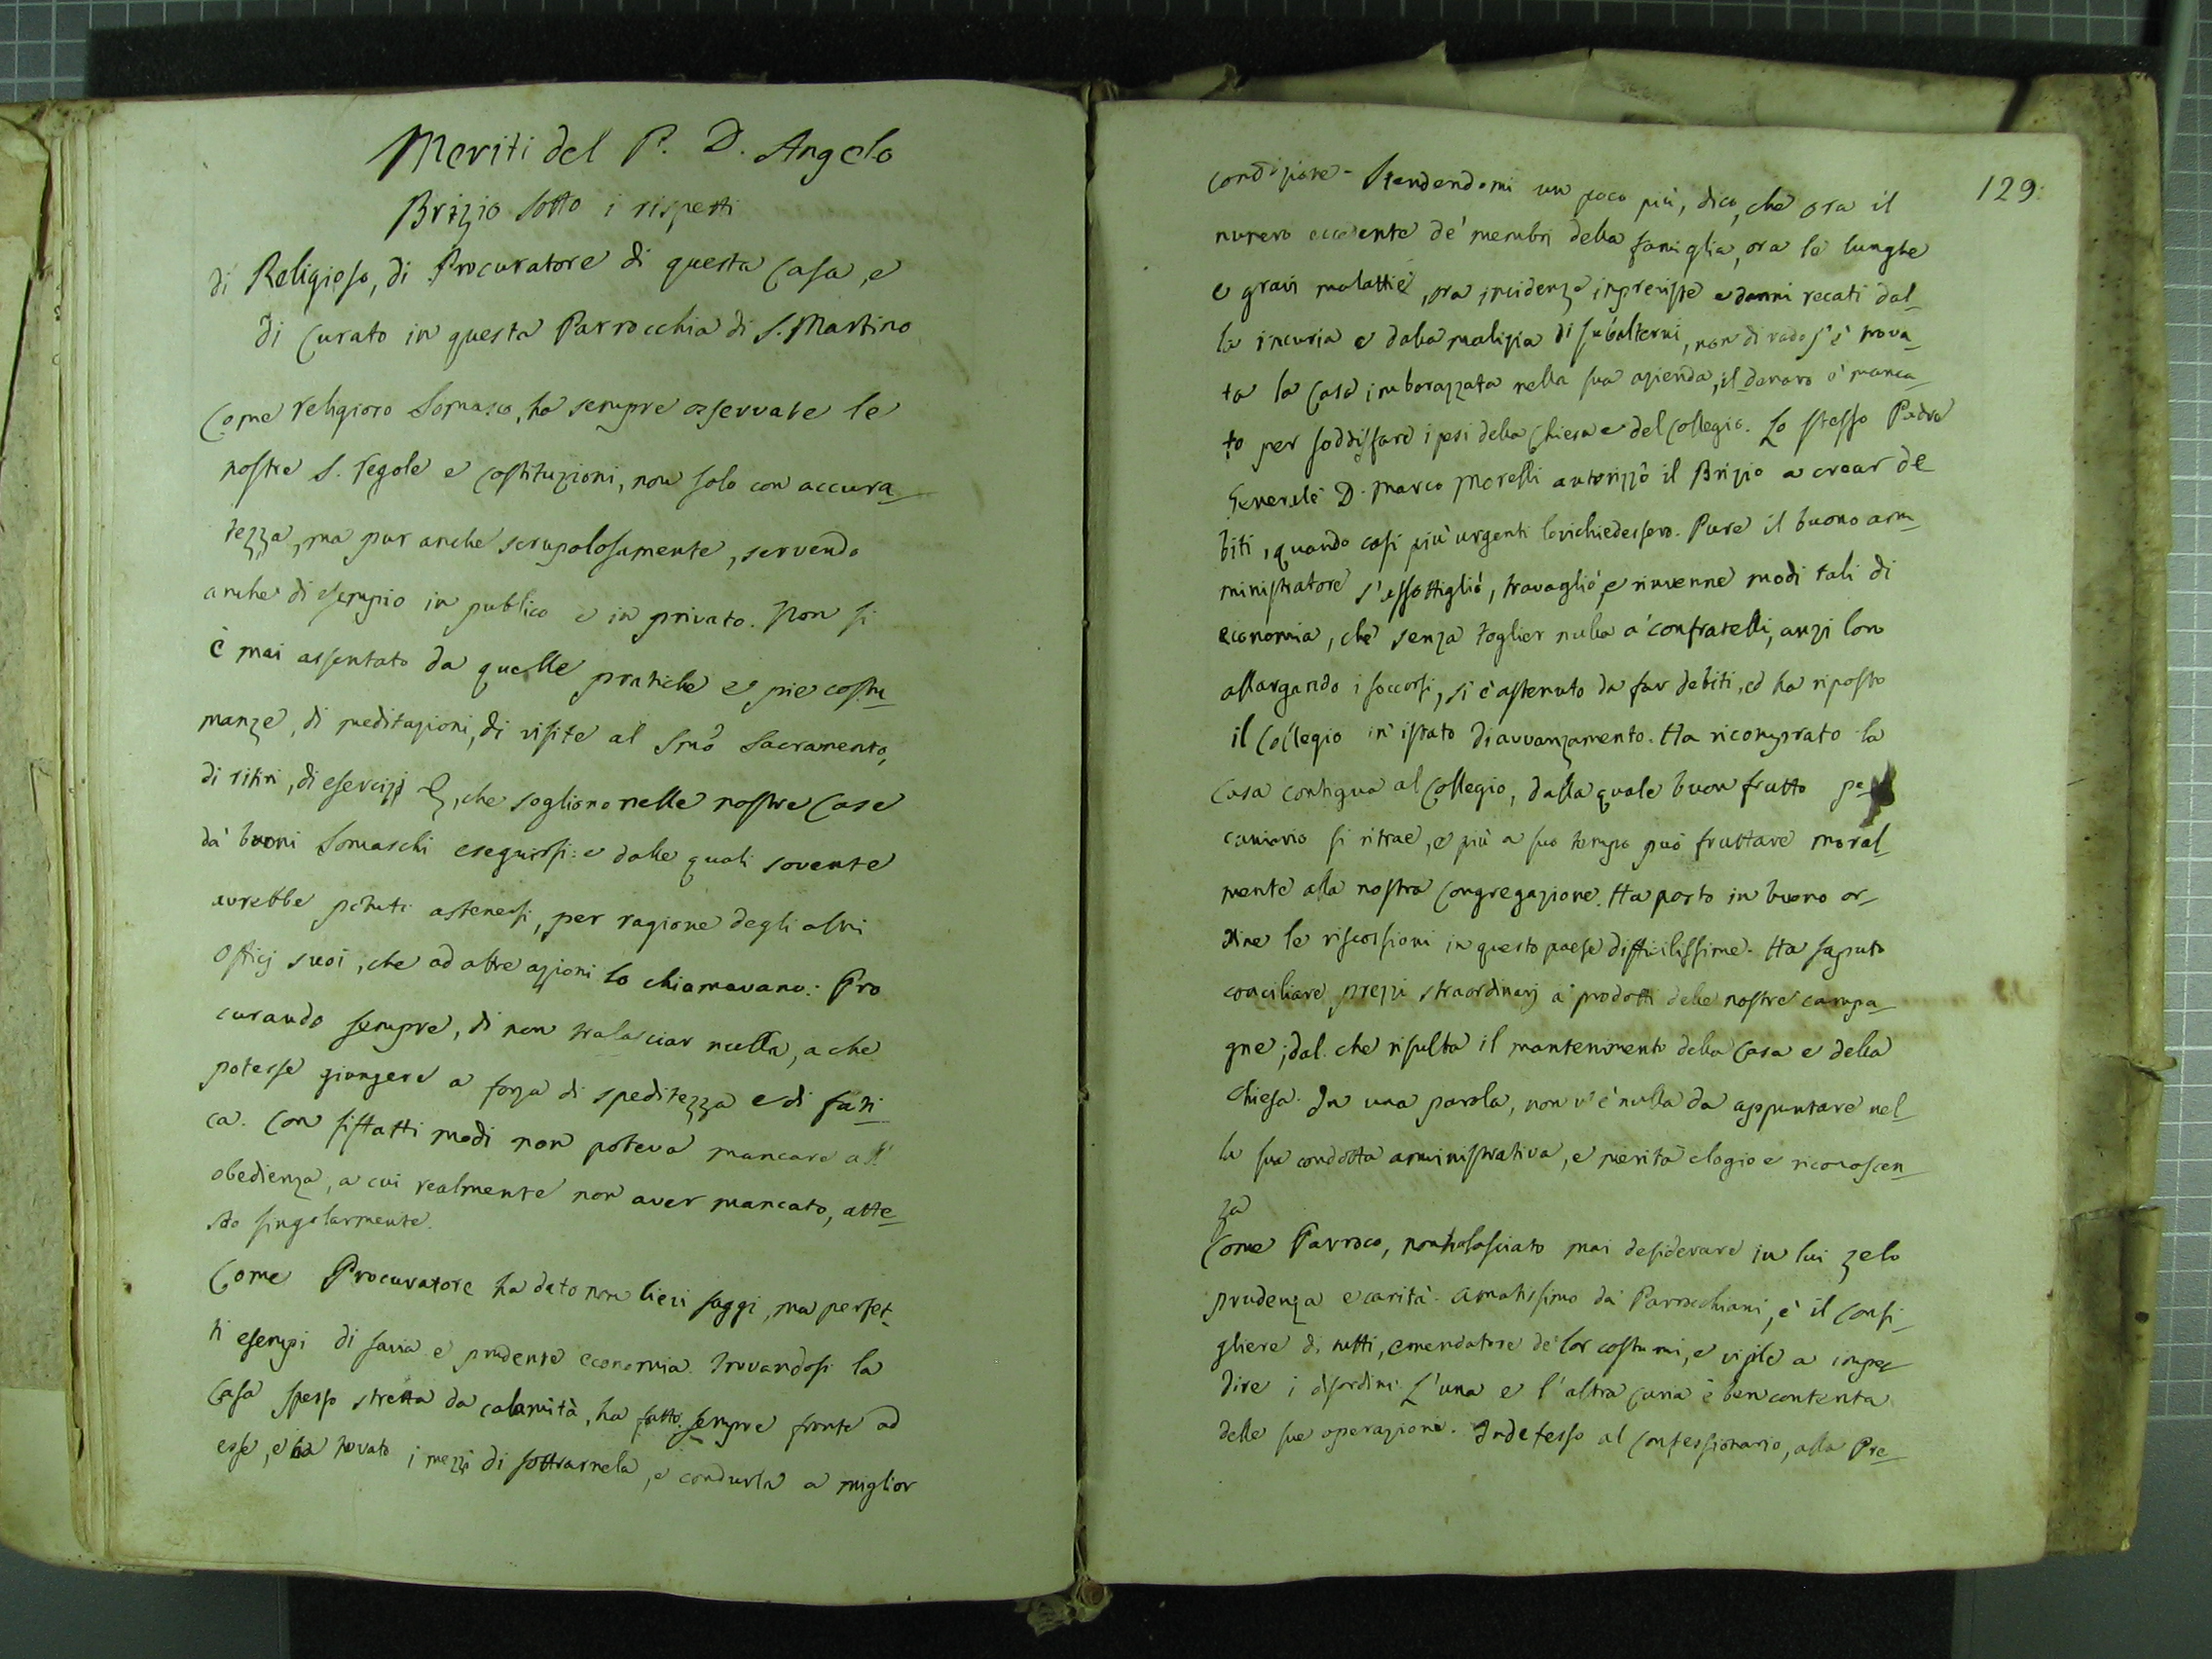 Meriti del P. D. Angelo
Brizio sotto i rispetti
di Religioso, di Procuratore di questa Casa, e
di Curato in questa Parrocchia di S. Martino
Come religioso Somasco, ha sempre osservate le
nostre S. regole e Costituzioni, non solo con accura_
tezza, ma pur anche scrupolosamente, servendo
anche di esempio in publico e in privato. Non si
è mai assentato da quelle pratiche e pie costu_
manze, di meditazioni, di visite al Smõ Sacramento,
di ritiri, di esercizj &, che sogliono nelle nostre Case
da' buoni Somaschi eseguirsi: e dalle quali sovente
avrebbe potuto astenersi, per ragione degli altri
officj suoi, che ad altre azioni lo chiamavano: Pro
curando sempre, di non tralasciar nulla, a che
potesse giongere a forza di speditezza e di fati_
ca. Con siffatti modi non poteva mancare all'
obedienza, a cui realmente non aver mancato, atte_
sto singolarmente.
Come Procuratore ha dato non lievi saggi, ma perfet_
ti esempi di savia e prudente economia. Trovandosi la
Casa spesso stretta da calamità, ha fatto sempre fronte ad
esse, e ha trovato i mezzi di sottrarnela, e condurla a miglior
129.
condizione. Stendendomi un poco più, dico, che ora il
numero eccedente de' membri della famiglia, ora le lunghe
e gravi malattie, ora incidenze impreviste e danni recati dal_
la incuria e dalla malizia di subalterni, non di rado s'è trova_
ta la Casa imbarazzata nella sua azienda, il danaro è manca_
to per soddisfare i pesi della Chiesa e del Collegio. Lo stesso Padre
Generale D. Marco Morelli autorizzò il Brizio a crear de_
biti, quando casi più urgenti lo richiedessero. Pure il buono am_
ministratore s'assottigliò, travagliò, e rinvenne modi tali di
economia, che senza toglier nulla a' confratelli, anzi loro
allargando i soccorsi, si è astenuto da far debiti, ed ha riposto
il Collegio in istato di avvanzamento. Ha ricomprato la
Casa contigua al Collegio, dalla quale buon frutto pe_
cuniario si ritrae, e più a suo tempo può fruttare moral_
mente alla nostra Congregazione. Ha posto in buono or_
dine le riscossioni in questo paese difficilissime. Ha saputo
conciliare prezzi straordinarj a' prodotti delle nostre campa_
gne; dal che risulta il mantenimento della Casa e della
Chiesa. In una parola, non v'è nulla da appuntare nel_
la sua condotta amministrativa, e merita elogio e riconoscen_
za
Come Parroco, non ha lasciato mai desiderare in lui zelo
prudenza e carità. Amatissimo da' Parrocchiani, è il Consi_
gliere di tutti, emendatore de' lor costumi, e vigile a impe_
dire i disordini. L'una e l'altra Curia è ben contenta
delle sue operazione. Indefesso al Confessionario, alla Pre_